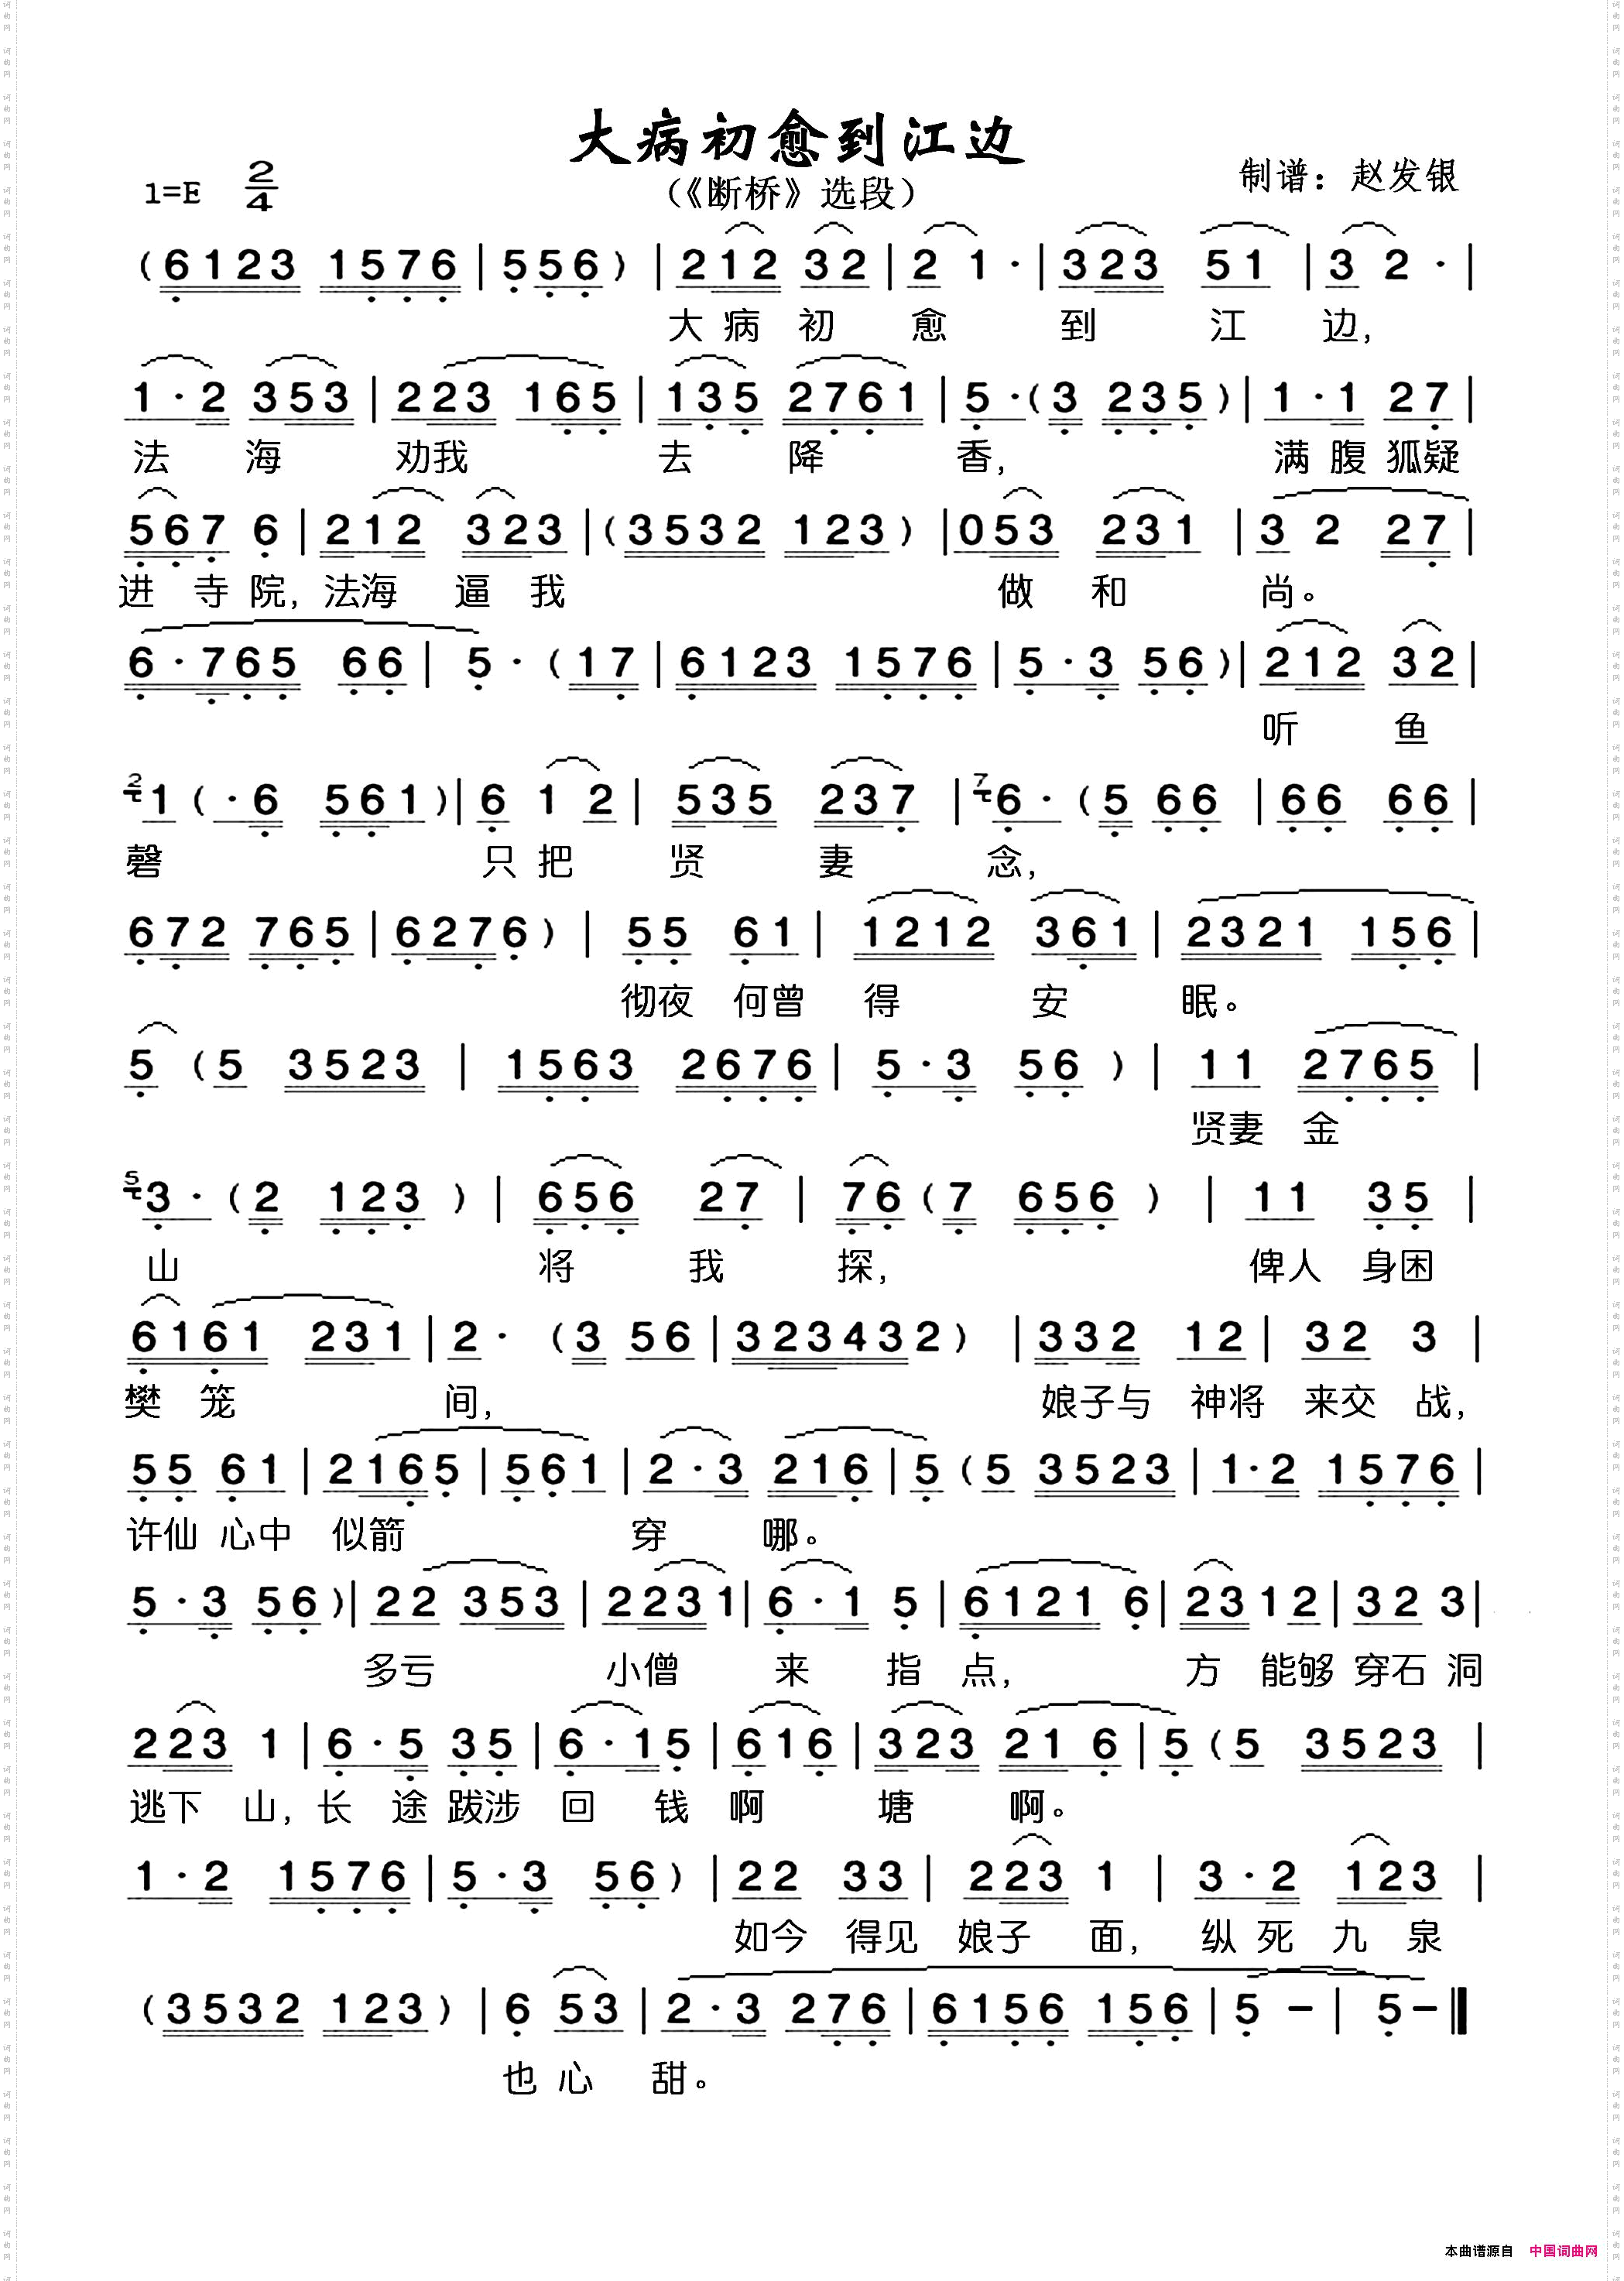 大病初愈到江边
(《断桥》选段)
1=E 2/4
制谱：赵发银
(6123 1576 | 556) | 212 32 | 2 1· | 323 51 | 3 2· |
大 病 初 愈 到 江 边,
1·2 353 | 223 165 | 135 2761 | 5·(3 235) | 1·1 27 |
法 海 劝我 去 降 香, 满 腹 狐疑
567 6 | 212 323 | (3532 123) | 053 231 | 3 2 27 |
进 寺 院, 法海 逼 我 做 和 尚。
6·765 66 | 5·(17 | 6123 1576 | 5·3 56) | 212 32 |
听 鱼
2 1(·6 561) | 6 1 2 | 535 237 | 7 6·(5 66 | 66 66 |
磬 只 把 贤 妻 念,
672 765 | 6276) | 55 61 | 1212 361 | 2321 156 |
彻夜 何曾 得 安 眠。
5 (5 3523 | 1563 2676 | 5·3 56) | 11 2765 |
贤妻 金
5 3·(2 123) | 656 27 | 76(7 656) | 11 35 |
山 将 我 探, 俾人 身困
6161 231 | 2·(3 56 | 323432) | 332 12 | 32 3 |
樊 笼 间, 娘子与 神将 来交 战,
55 61 | 2165 | 561 | 2·3 216 | 5(5 3523 | 1·2 1576 |
许仙 心中 似箭 穿 哪。
5·3 56) | 22 353 | 2231 | 6·1 5 | 6121 6 | 23 1 2 | 32 3 |
多亏 小僧 来 指 点, 方 能够 穿石 洞
223 1 | 6·5 35 | 6·15 | 616 | 323 21 6 | 5(5 3523 |
逃下 山, 长 途 跋涉 回 钱 啊 塘 啊。
1·2 1576 | 5·3 56) | 22 33 | 223 1 | 3·2 123 |
如今 得见 娘子 面, 纵 死 九 泉
(3532 123) | 6 53 | 2·3 276 | 6156 156 | 5 - | 5 - ‖
也 心 甜。
本曲谱源自 中国词曲网